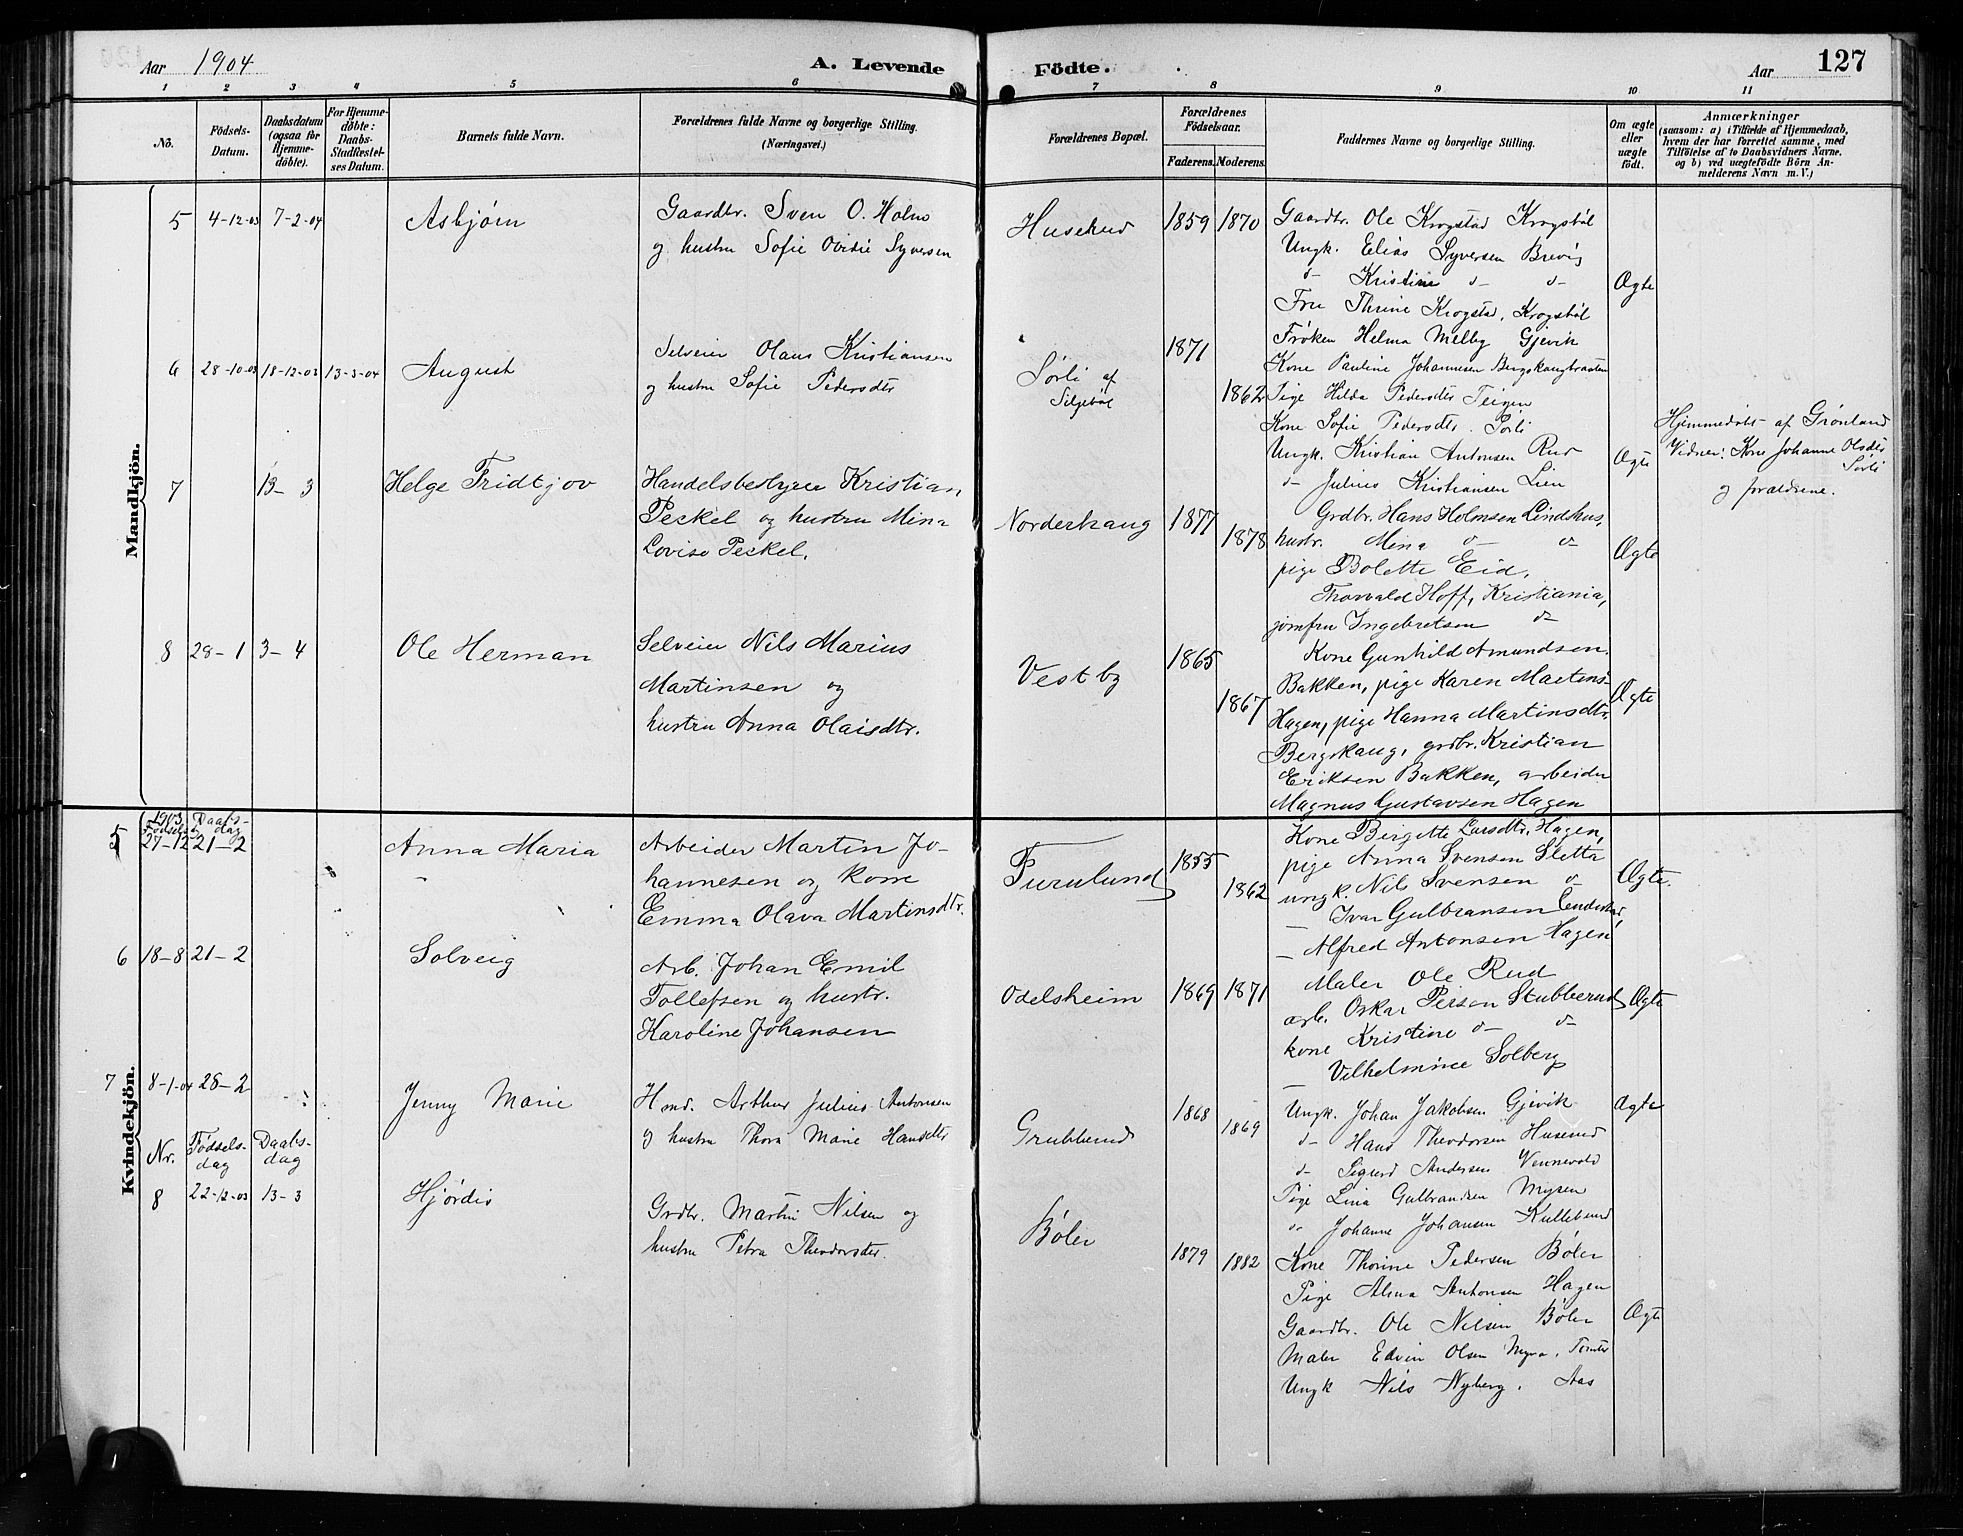 Aar 1904
A. Levende Födte.
Aar 127
1 2 3 4 5 6 7 8 9 10 11
No.
Födsels-Datum.
Daabsdatum (ogsaa for Hjemmedöbte).
For Hjemmedöbte: Daabs-Stadfæstelses Datum.
Barnets fulde Navn.
Forældrenes fulde Navne og borgerlige Stilling. (Næringsvei.)
Forældrenes Bopæl.
Forældrenes Födselsaar.
Faderens. Moderens.
Faddernes Navne og borgerlige Stilling.
Om ægte eller uægte födt.
Anmærkninger
(saasom: a) i Tilfælde af Hjemmedaab,
hvem der har forrettet samme, med
Tilföielse af to Daabsvidners Navne.
og b) ved uægtefödte Börn An-
melderens Navn m. V.)
Mandkjön.
5 4-12-03 7-2-04 Asbjørn
Gaardbr. Sven O. Holm
og hustru Sofie Ovidie Syversen
Huserud 1859 1870
Gaardbr. Ole Krogstad Krogsbøl
Ungk. Elias Syversen Brevig
d- Kristine d- d-
Fru Thrine Krogstad, Krogsbøl
Frøken Helma Melby Gjevik
Ægte
6 28-10-03 18-12-03 13-3-04 August
Selveier Olaus Kristiansen
og hustru Sofie Pedersdtr
Sørli af
1871 1862
Kone Pauline Johannesen Bergskaugbraaten
Pige Hilda Pedersdtr Teigen
Kone Sofie Pedersdtr. Sørli
Ungk. Kristian Antonsen Rud
d- Julius Kristiansen Lien
Ægte
Hjemmedøbt af Grønlund
Vidner: Kone Johanne Olsdtr
Sørli
og forældrene.
7 13- 3 Helge Fridtjov
Handelsbestyrer Kristian
Peckel og hustru Mina
Lovise Peckel.
Norderhaug 1877 1878
Grdbr. Hans Holmsen Lindshus,
hustr. Mina d- d-
pige Bolette Eid,
Thorvald Hoff, Kristiania,
jomfru Ingebretsen d-
Ægte
8 28-1 3-4 Ole Herman
Selveier Nils Marius
Martinsen og
hustru Anna Olaisdtr.
Vestby 1865 1867
Kone Gunhild Amundsen.
Bakken, pige Karen Martens-
Hagen, pige Hanna Martinsdtr.
Bergskaug, grdbr. Kristian
Eriksen Bakken, arbeider
Magnus Gustavsen Hagen
Ægte
Kvindekjön.
1903 Fødselsdag Daabs-dag
5 27-12 21-2 Anna Maria
Arbeider Martin Jo-
hannesen og kone
Emma Olava Martinsdtr.
Furulund 1855 1862
Kone Birgitte Larsdtr. Hagen,
pige Anna Svensen Sletta
ungk. Nils Svensen d-
Ivar Gulbransen
- Alfred Antonsen Hagen
Ægte.
6 18-8 21-2 Solveig
Arb. Johan Emil
Tollefsen og hustr.
Karoline Johansen
Odelsheim 1869 1871
Maler Ole Rud
arb. Oskar Person Stubberud
kone Kristine d- d-
- Vilhelmine Solberg
Ægte
7 8-1-04 28-2 Jenny Marie
Hmd. Arthur Julius Antonsen
og hustru Thora Marie Hansdtr
Grubberud 1868 1869
Ungk. Johan Jakobsen Gjevik
d- Hans Theodorsen Huserud
d- Sigurd Andersen Vennevold
Pige Lina Gulbrandsen Mysen
d- Johanne Johansen Kullebund
Ægte
Nr. Fødsels-dag Daabs-dag
8 22-12-03 13-3 Hjørdis
Grdbr. Martin Nilsen og
hustru Petra Theodorsdtr.
Bøler 1879 1882
Kone Thorine Pedersen Bøler
Pige Alma Antonsen Hagen
Gaardbr. Ole Nilsen Bøler
Maler Edvin Olsen Myra, Tomter
Ungk Nils Nyberg. Aas
Ægte